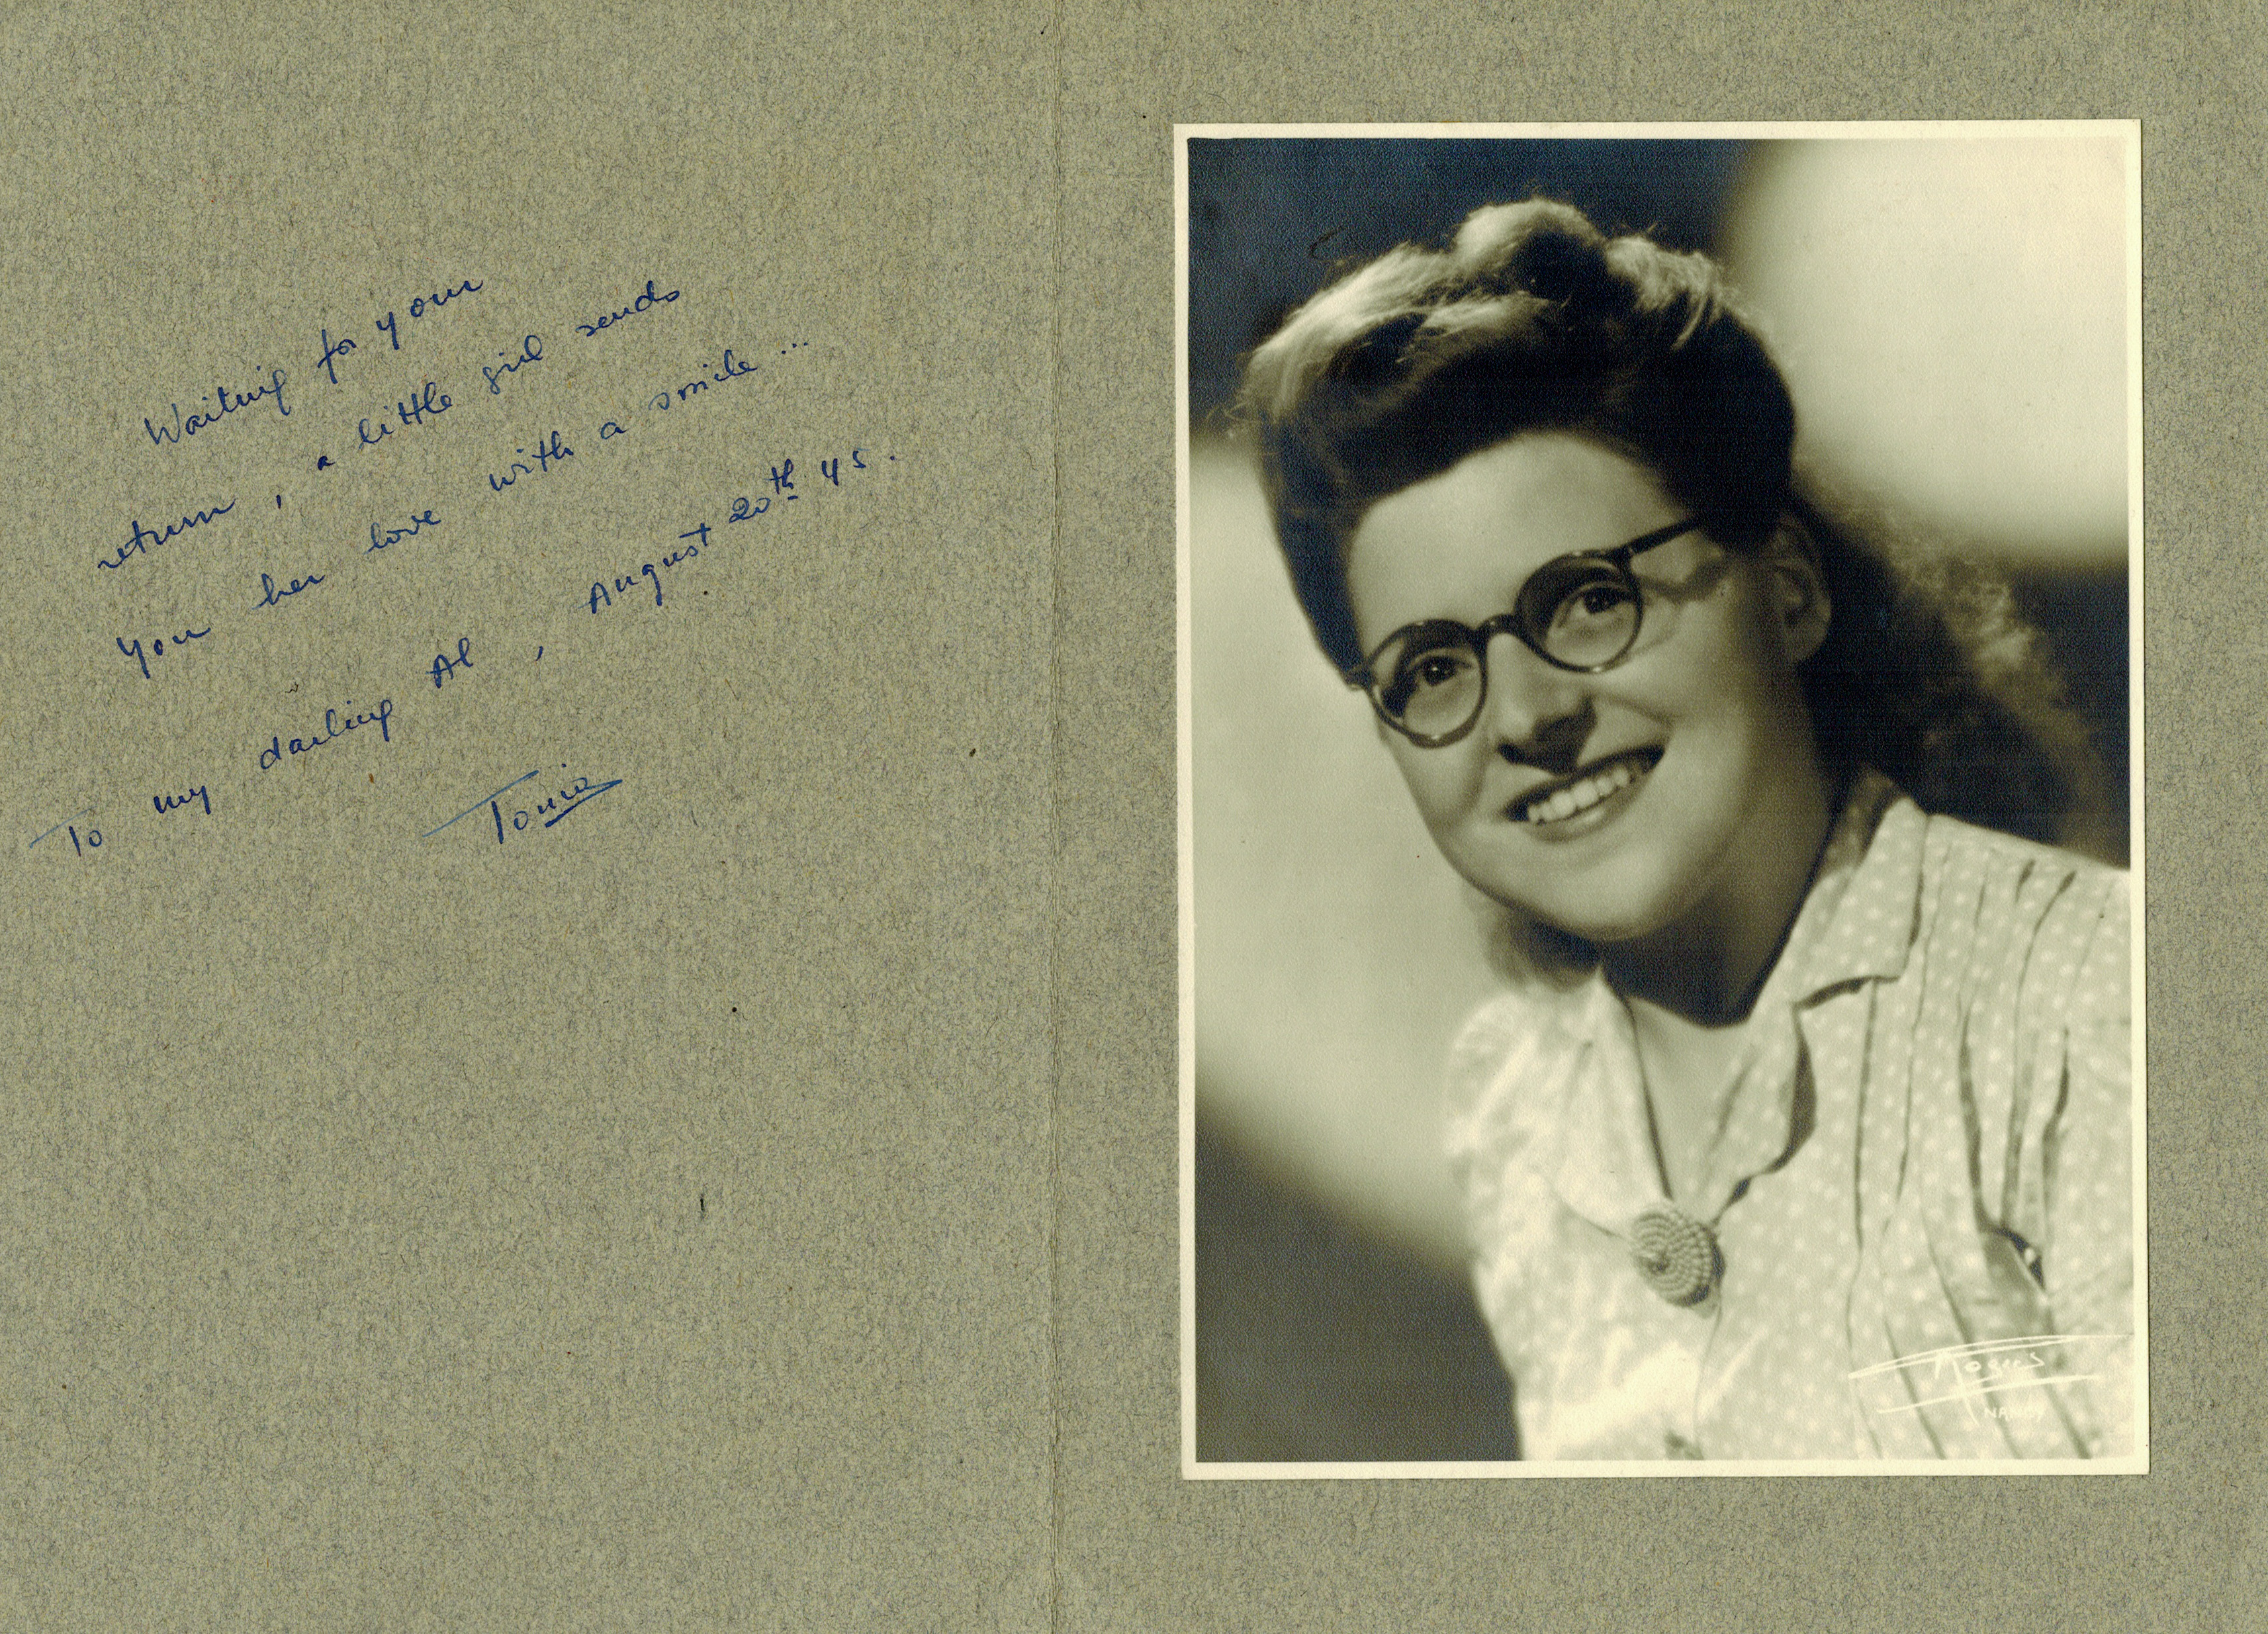 Waiting for your
return, a little girl sends
you her love with a smile...
To my darling Al, August 20th 45.
Tonia
Rogers
NANCY